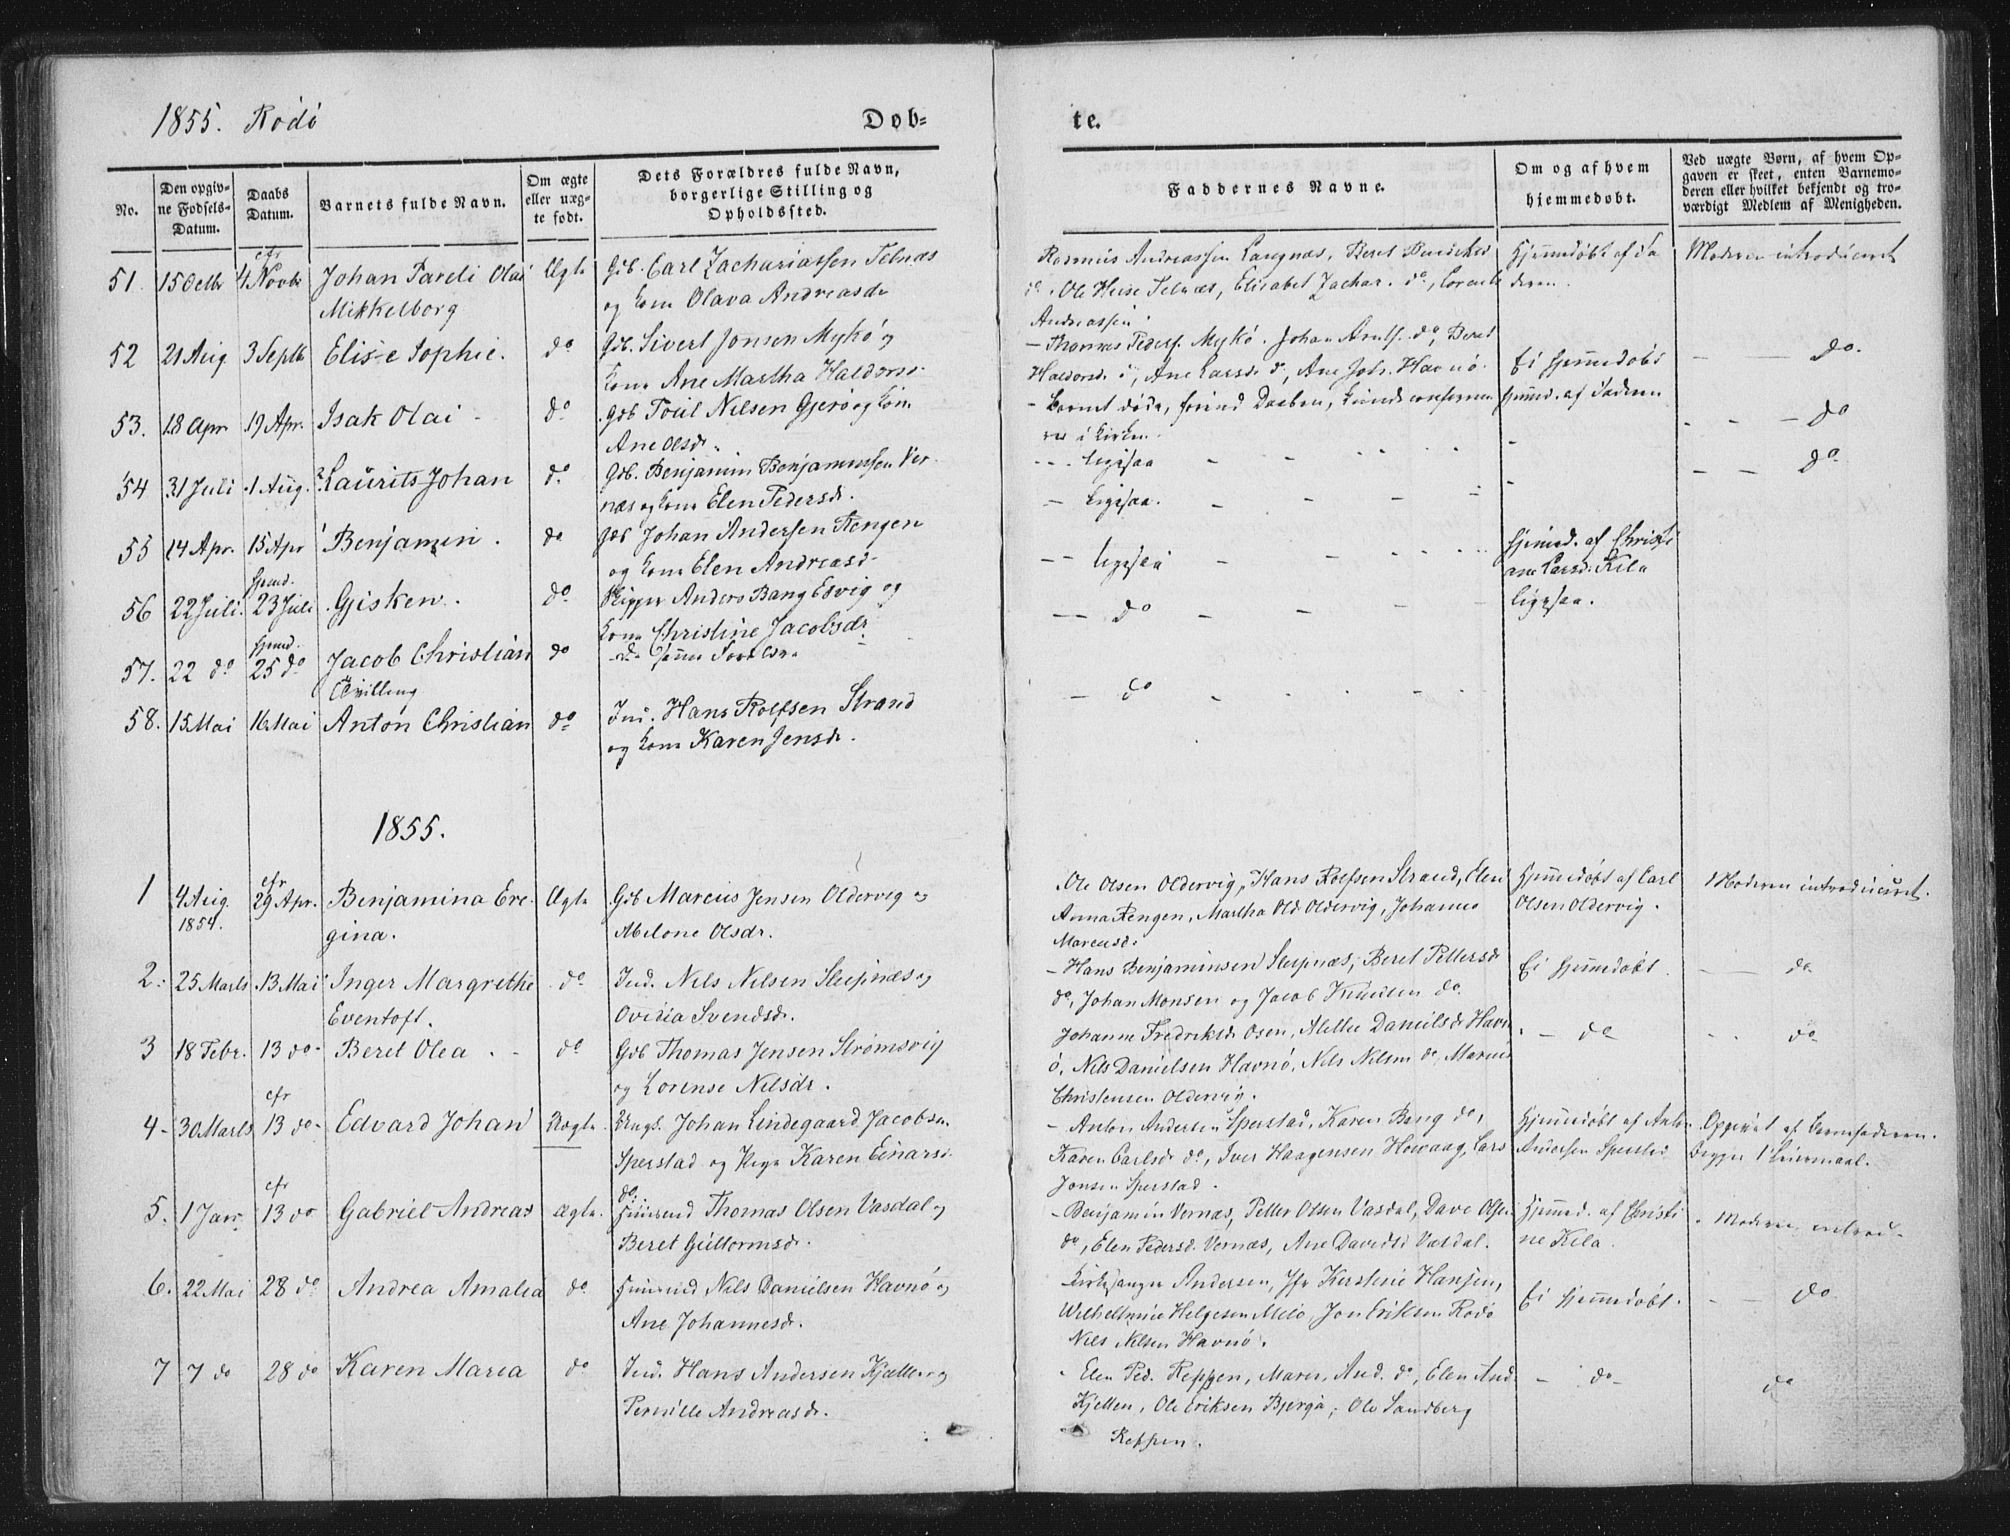 1855. Rödö
Døb-
te.
No.
Den opgiv-
ne Fødsels-
Datum.
Daabs
Datum.
Barnets fulde Navn.
Om ægte
eller uæg-
te født.
Dets Forældres fulde Navn,
borgerlige Stilling og
Opholdssted.
Faddernes Navne.
Om og af hvem
hjemmedøbt.
Ved uægte Børn, af hvem Op-
gaven er skeet, enten Barnemo-
deren eller hvilket bekjendt og tro-
værdigt Medlem af Menigheden.
51. 15 Octbr cfr 4 Novbr Johan Pareli Olai Ægte Gdb. Carl Zachariassen Telnæs
Mikkelborg og Kone Olava Andreasdr
Rasmus Andreassen Langnæs, Beret
do. Ole Telnæs, Elisabet Zachar. do,
Andreassen.
Hjemmedøbt af Fa
deren.
Moderen introduceret
52 21 Aug. 3 Septb Elise Sophie. do Gdb. Sivert Jonsen Mykö og
Kone Ane Martha Haldorsd.
- Thomas Peders. Mykö. Johan do, Beret
Haldorsd. Ane Larsd. do, Ane Joh. Havnö.
Ei hjemmedøbt
— — do.
53. 18 Apr 19 Apr. Isak Olai - do Gdb Nilsen Gjerö og Kone
Ane Olsdr.
- Barnet døde, forind Daaben,
i Kirken.
hjemd. af Faderen
- - - do
54 31 Juli 1 Aug. Laurits Johan do. Gdb. Benjamin Benjaminsen Ver
næs og Kone Elen Pedersdr.
- - - ligesaa - - - -
— — do
55 14 Apr. 15 Apr Benjamin. do Gdb Johan Andersen Rengen
og Kone Elen Andreasd.
— ligesaa. - - -
56 22 Juli. hjemd. 23 Juli Gisken. do Skipper Anders Bang Esvig og
Kone Christine Jacobsdr
— — ligesaa - - -
hjemd. af Christi
ane Larsd. Kila
57. 22 do hjemd. 25 do Jacob Christian do do samme Forældre
Tvilling
— — do - - -
ligesaa.
58. 15 Mai 16 Mai Anton Christian do Ind. Hans Rolfsen Strand
og Kone Karen Jensdr.
— do - - -
1855.
1 4 Aug. 1854. cfr 29 Apr. Benjamina Ere- Ægte Gdb Marcus Jensen Oldervig og
gina. Abelone Olsdr.
Ole Olsen Oldervig, Hans Rolfsen Strand, Elen
Anna Rengen, Martha Old. Oldervig, Johanna
Marcusd.
Hjemmedøbt af Carl
Olsen Oldervig.
Moderen introduceret.
2. 25 Marts 13 Mai Inger Margrethe do Ind. Nils Nilsen Sleipnæs og
Eventoft. Ovidia Svendsdr.
- Hans Benjaminsen Sleipnæs, Beret Pettersd
do, Johan Monsen og Jacob Knudsen do.
Ei hjemmedøbt.
— — do
3 18 Febr. 13 do Beret Olea. - do Gdb Thomas Jensen Strömsvig
og Lorense Nilsdr.
Johanne Fredriksd. Osen, Danielsd. Havn
ö, Nils Danielsen Havnö, Nils Nilsen do, Marcus
Christensen Oldervig.
- — do
- - do
4 30 Marts cfr 13 do Edvard Johan Uægte Ungk. Johan Lindegaard Jacobsen
Sperstad og Pige Karen Einarsd.
- Anton Andersen Sperstad, Karen Bang do,
Karen Carlsdr do, Iver Haagensen Howaag, Lars
Jonsen Sperstad.
Hjemmedøbt af Anton
Andersen Sperstad
Opgivet af Barnefaderen.
Begges 1 Leiermaal.
5. 1 Janr cfr 13 do Gabriel Andreas Ægte. do. Thomas Olsen Vasdal og
Beret Guttormsdr.
- Benjamin Vernæs, Petter Olsen Vasdal, Dave Olsen
do, Elen Pedersd. Vernæs, Ane Davidsd Vasdal.
Hjemmed. af Christi
ne Kila.
Moderen introd.
6. 22 Mai 28 do Andrea Amalia do Nils Danielsen Havnö og
Ane Johannesdr.
Kirkesanger Andersen, Jfr Hansen,
Helgesen Melö, Jon Eriksen Rödö
Nils Nilsen Havnö.
Ei hjemmedøbt.
— — do
7 7 do 28 do Karen Maria do Ind. Hans Andersen Kjellen og
Pernille Andreasdr.
Elen Ped. Reppen, Maren And. do, Elen And
Kjellen, Ole Eriksen Bjergø, Ole Sandberg
Reppen.
— do
do